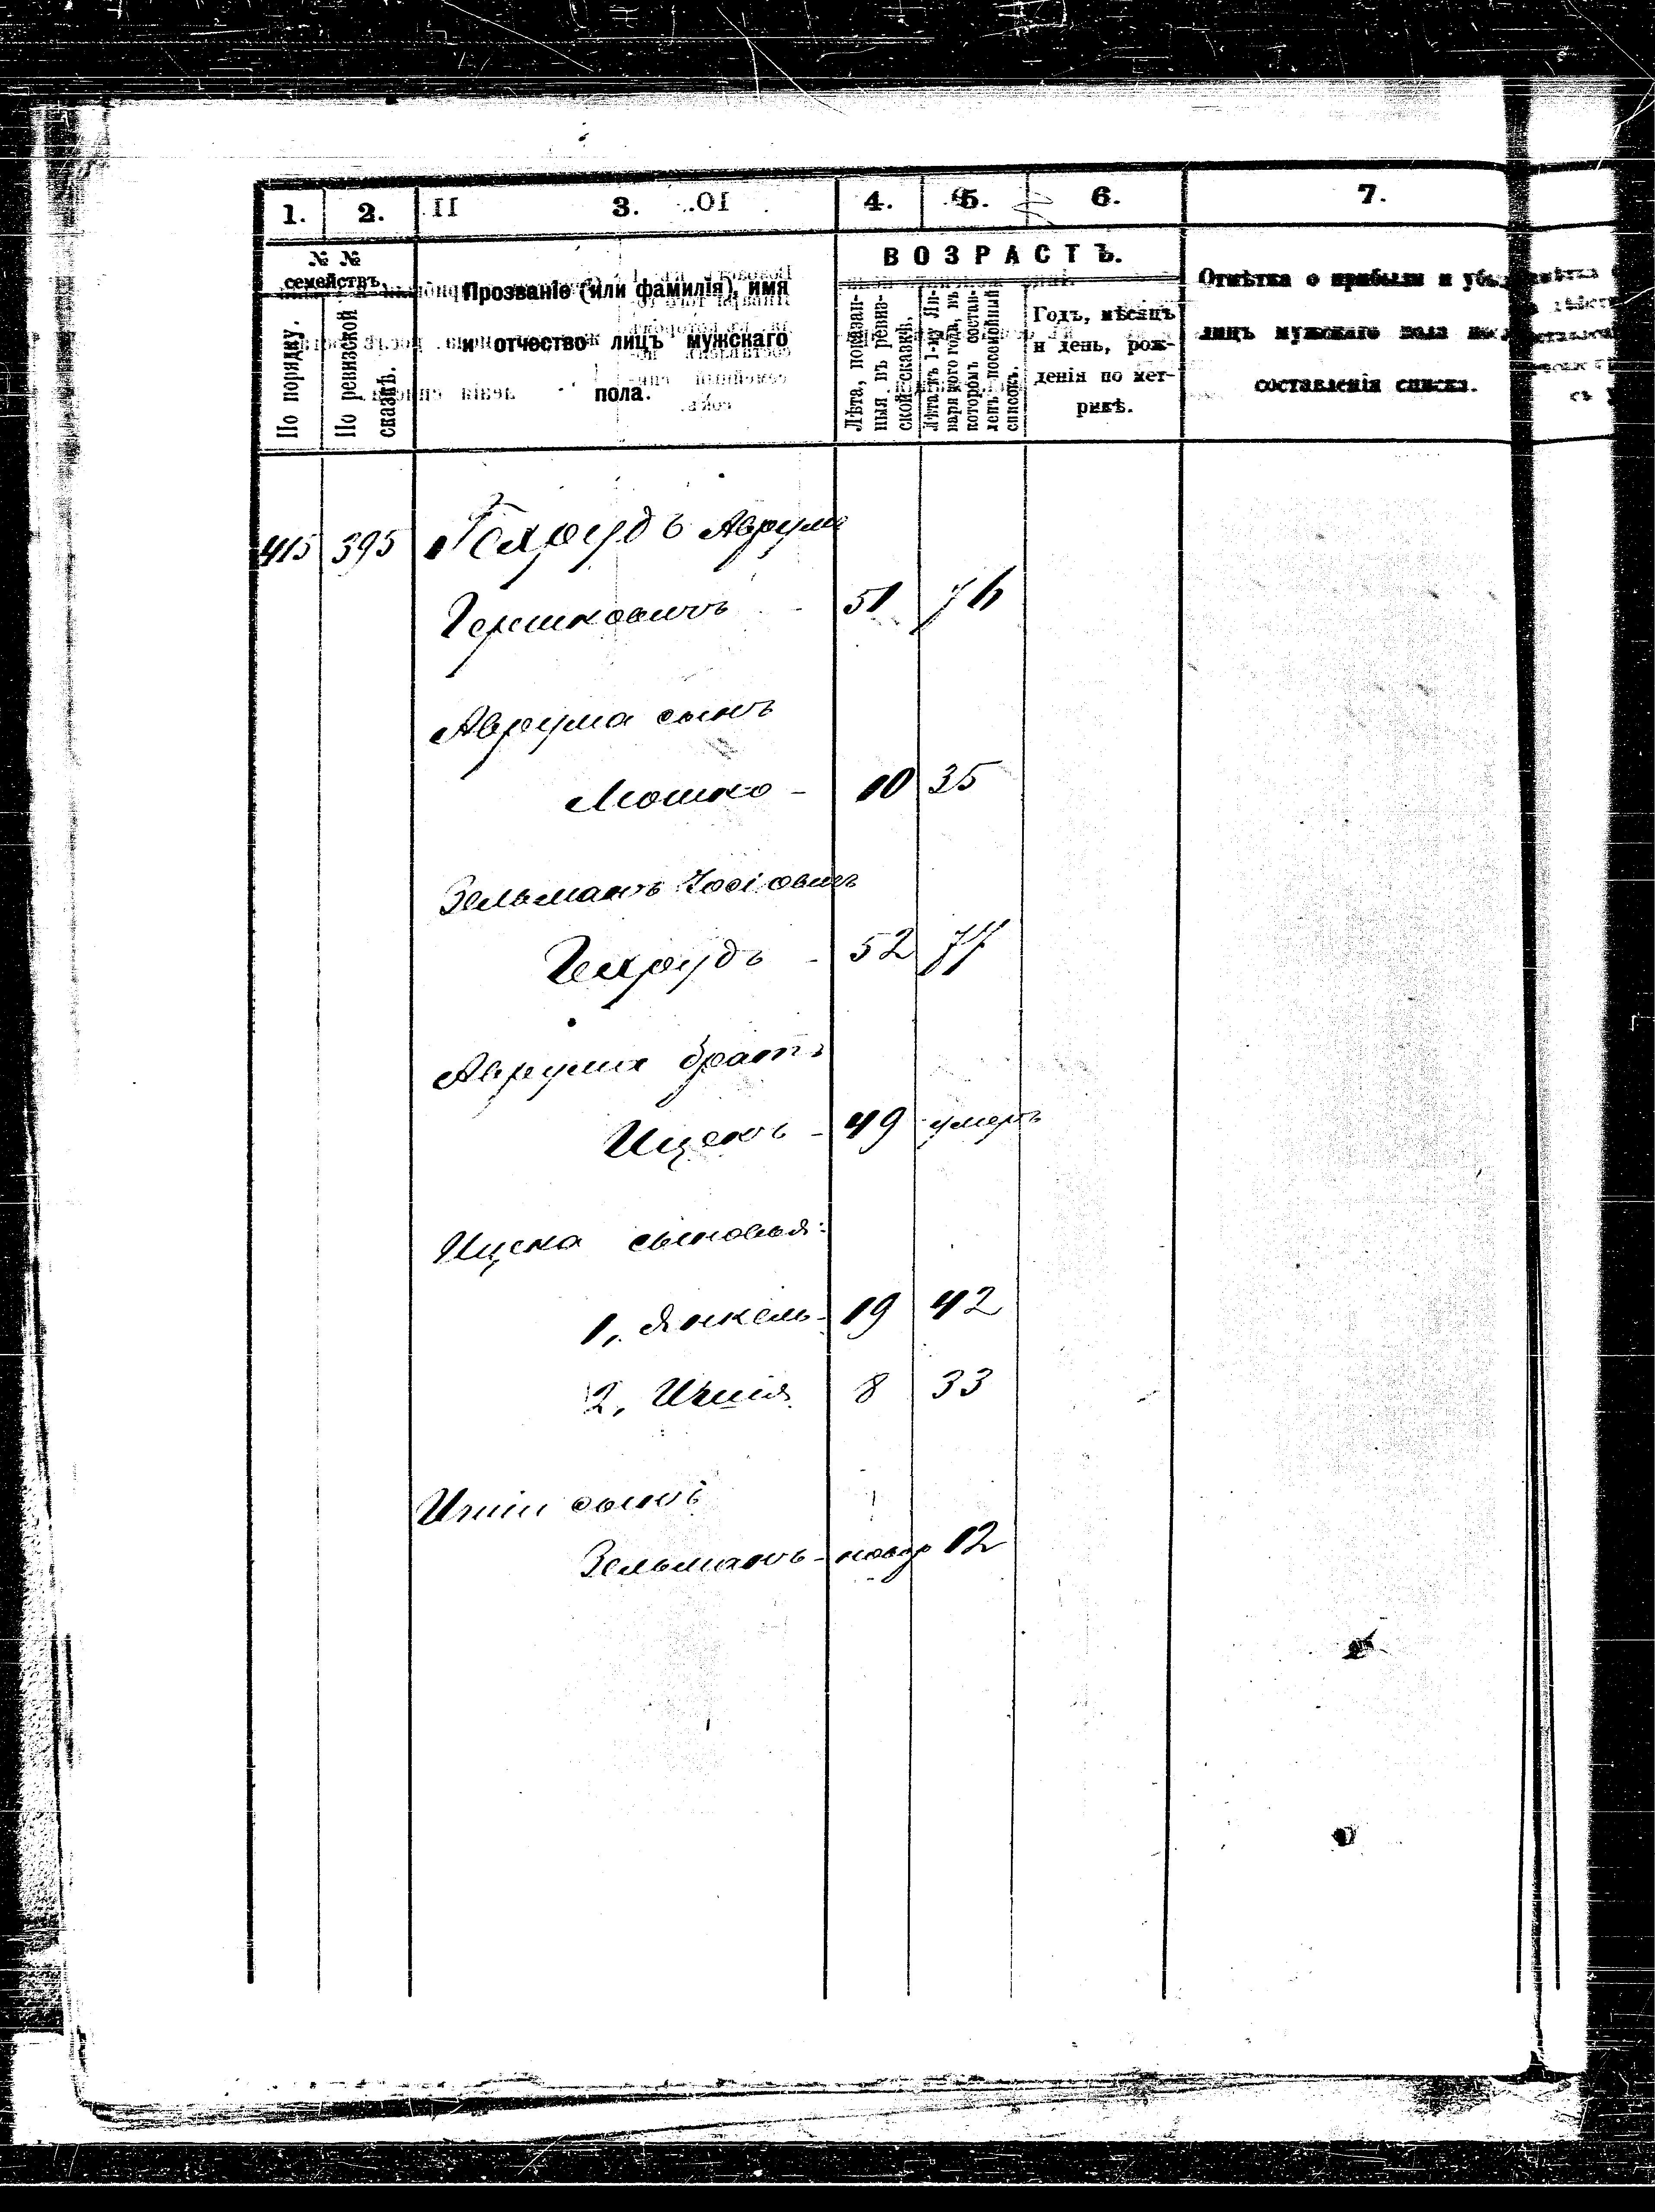 1. 2. 3. 4. 5. 6. 7.
№ № семействъ.
По порядку.
По ревизской сказкѣ.
Прозваніе (или фамилія), имя
и отчество лицъ мужскаго
пола.
ВОЗРАСТЪ.
Лѣта, показан-
ныя въ ревиз-
ской сказкѣ.
Лѣта къ 1-му Ян-
варя кого года, въ
которомъ состав-
ленъ посемейный
списокъ.
Годъ, мѣсяцъ
и день, рож-
денія по мет-
рикѣ.
Отмѣтка о прибыли и
лицъ мужскаго пола
составленія списка.
415 395 Гехрудъ Аврумъ
Гершковичъ 51 76
Аврума сынъ
Мошко - 10 35
Зельманъ
Гехрудъ - 52 77
Аврума братъ
Ицекъ - 49 умеръ
Ицека сыновья:
1, Янкель - 19 42
2, Ихиія 8 33
сынъ
Зельманъ - новор 12